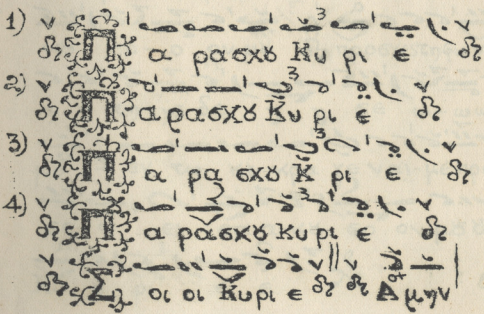 1) Π α ρα σχȣ Κυ ρι ε
2) Π α ρα σχȣ Κυ ρι ε
3) Π α ρα σχȣ Κ ρι ε
4) Π α ρα σχȣ Κυ ρι ε
Σ οι οι Κυρι ε Α μην